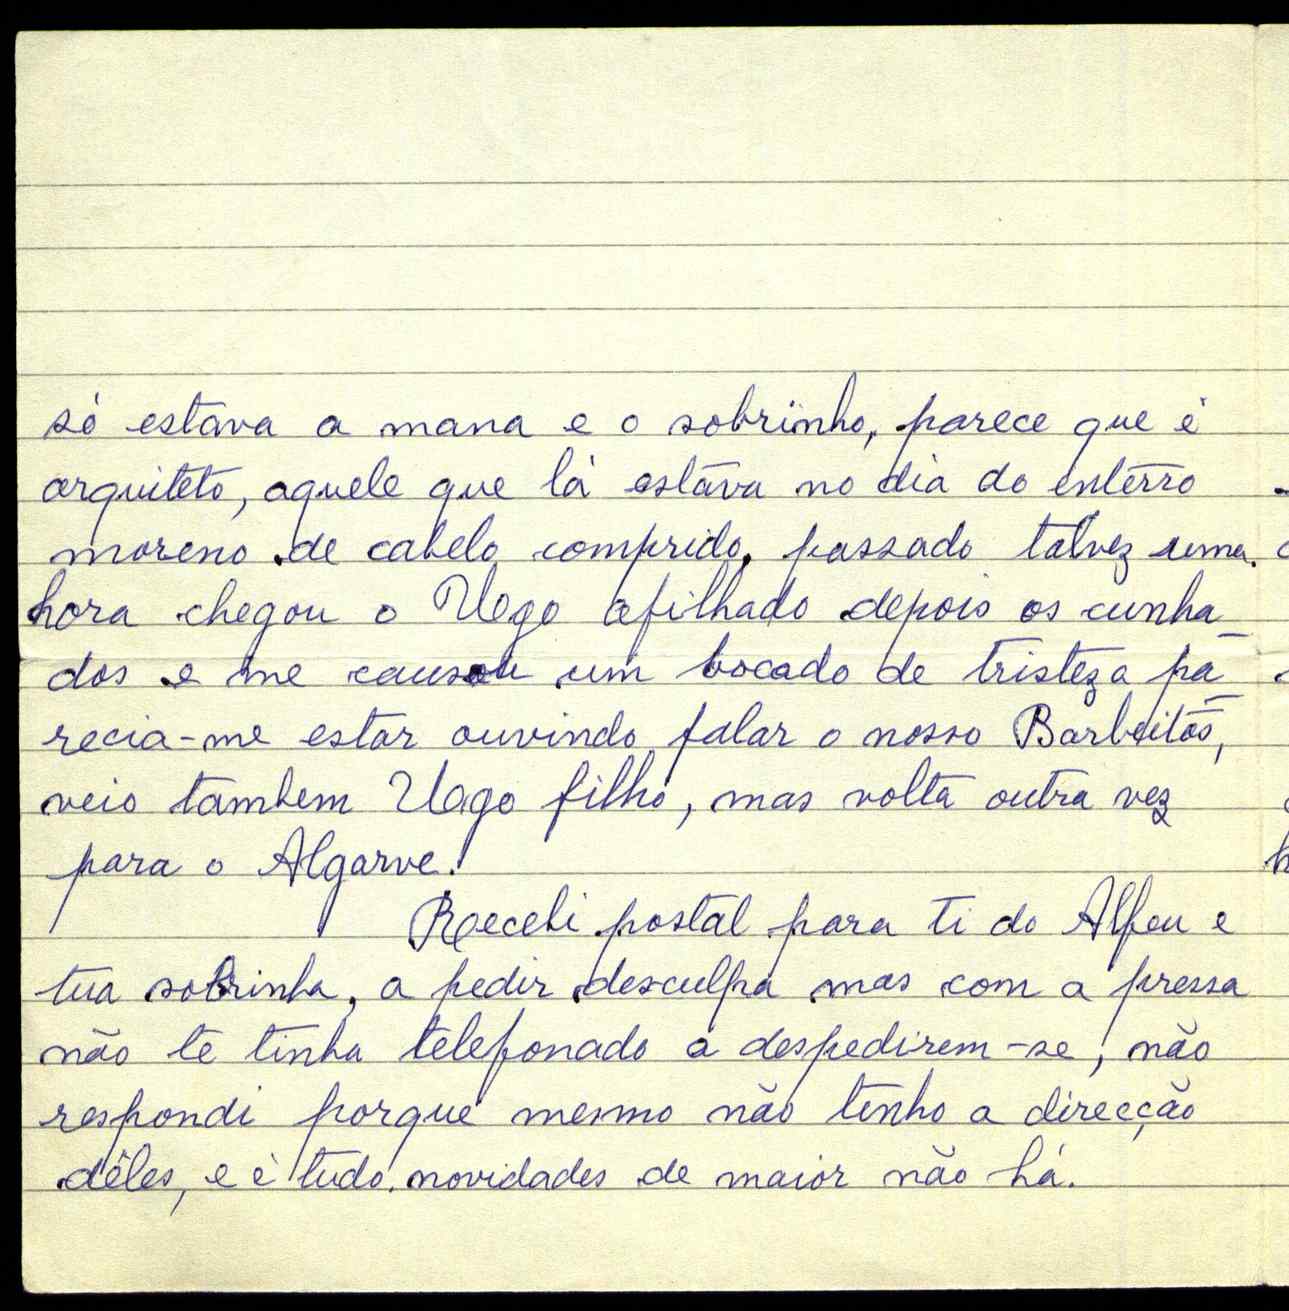 só estava a mana e o sobrinho, parece que é
arquiteto, aquele que lá estava no dia do enterro
moreno de cabelo comprido, passado talvez uma
hora chegou o Ugo afilhado depois os cunha
dos e me causou um bocado de tristeza pa-
recia-me estar ouvindo falar o nosso Barbeitos,
veio tambem Ugo filho, mas volta outra vez
para o Algarve.
Recebi postal para ti do Alfeu e
tua sobrinha, a pedir desculpa mas com a pressa
não te tinha telefonado a despedirem-se, não
respondi porque mesmo não tenho a direcção
dêles, e è tudo. novidades de maior não há.